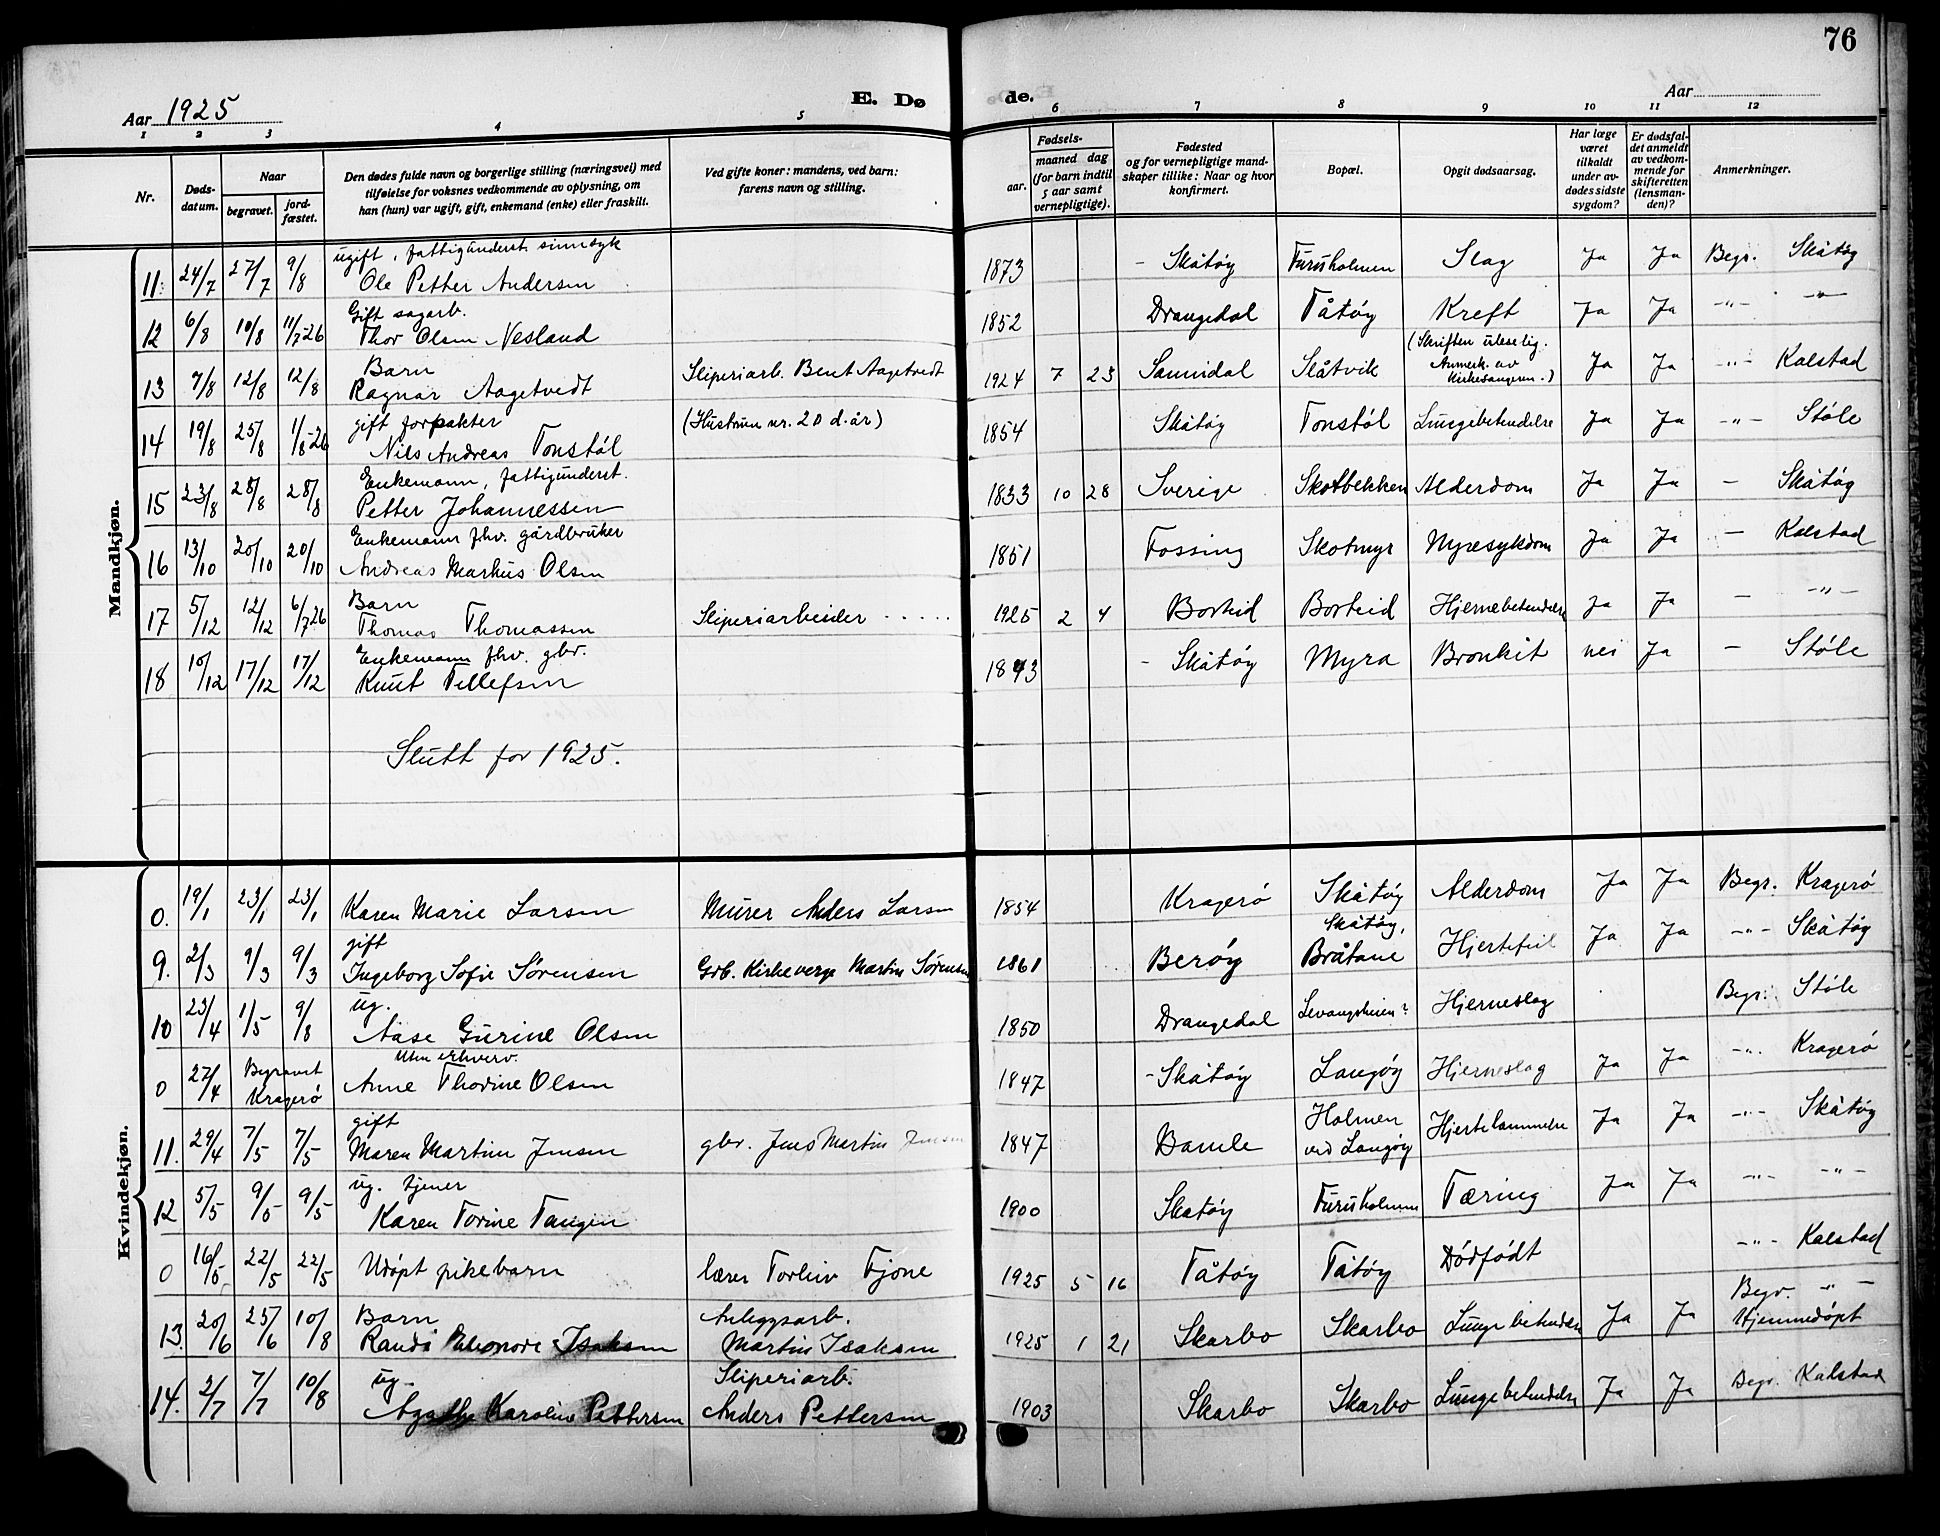 76
Aar 1925 E. Dø de. Aar
1 2 3 4 5 6 7 8 9 10 11 12
Nr. Døds-datum. Naar begravet. jord-fæstet. Den dødes fulde navn og borgerlige stilling (næringsvei) med tilføielse for voksnes vedkommende av oplysning, om han (hun) var ugift, gift, enkemand (enke) eller fraskilt. Ved gifte koner: mandens, ved barn: farens navn og stilling. Fødsels- aar. maaned dag (for barn indtil 5 aar samt vernepligtige). Fødested og for vernepligtige mand-skaper tillike: Naar og hvor konfirmert. Bopæl. Opgit dødsaarsag. Har læge været tilkaldt under av-dødes sidste sygdom? Er dødsfal-det anmeldt av vedkom-mende for skifteretten (lensman-den)? Anmerkninger.
Mandkjøn.
ugift, fattigunderst. sinnsyk
11. 24/7 27/7 9/8 Ole Petter Andersen 1873 - Skåtøy Furuholmen Slag Ja Ja Begr. Skåtøy
Gift sagarb.
12 6/8 10/8 11/7-26 Thor Olsen Vesland 1852 Drangedal Tåtøy Kreft Ja Ja -"- -"-
Barn (Skriften uleselig. Anmerk. av Kirkesangeren.)
13 7/8 12/8 12/8 Ragnar Aagetvedt Sliperiarb. Bent Aagetvedt 1924 7 23 Sannidal Slåtvik Ja Ja -"- Kalstad
gift forpakter
14 19/8 25/8 1/8-26 Nils Andreas Tonstøl (Hustruen nr. 20 d. år) 1854 Skåtøy Tonstøl Lungebetendelse Ja Ja -"- Støle
Enkemann, fattigunderst.
15 23/8 28/8 28/8 Petter Johannessen 1833 10 28 Sverige Skotbekken Alderdom Ja Ja - Skåtøy
Enkemann fhv. gårdbruker
16 13/10 20/10 20/10 Andreas Markus Olsen 1851 Fossing Skotmyr Nyresykdom Ja Ja - Kalstad
Barn
17 5/12 12/12 6/7-26 Thomas Thomassen Sliperiarbeider ..... 1925 2 4 Borteid Borteid Hjernebetendelse Ja Ja - -"-
Enkemann fhv. gbr.
18 10/12 17/12 17/12 Knut Tellefsen 1843 - Skåtøy Myra Bronkit nei Ja - Støle
Slutt for 1925.
Kvindekjøn.
0. 19/1 23/1 23/1 Karen Marie Larsen Murer Anders Larsen 1854 Kragerø Skåtøy Alderdom Ja Ja Begr. Kragerø
gift Skåtøy,
9. 2/3 9/3 9/3 Ingeborg Sofie Sørensen Grb. Kirkeverge Martin Sørensen 1861 Berøy Bråtane Hjertefeil Ja Ja -"- Skåtøy
ug.
10 23/4 1/5 9/8 Aase Gurine Olsen 1850 Drangedal Levangsheien? Hjerneslag Begr. Støle
Uten erhverv.
0 27/4 Begravet Kragerø Anne Thorine Olsen 1847 - Skåtøy Langøy Hjerneslag Ja Ja -"- Kragerø
gift
11. 29/4 7/5 7/5 Maren Martine Jensen gbr. Jens Martin Jensen 1847 Bamle Holmen ved Langøy Hjertelammelse Ja Ja -"- Skåtøy
ug. tjener
12 5/5 9/5 9/5 Karen Torine Tangen 1900 Skåtøy Furuholmen Tæring Ja Ja -"- -"-
0 16/5 22/5 22/5 Udøpt pikebarn lærer Torleiv Fjone 1925 5 16 Tåtøy Tåtøy Dødfødt -"- Kalstad
Barn Anleggsarb. Begr. -"-
13. 20/6 25/6 10/8 Randi Eleonore Isaksen Martin Isaksen 1925 1 21 Skarbo Skarbo Lungebetendelse Ja Ja Hjemmedøpt
ug. Sliperiarb.
14. 2/7 7/7 10/8 Agathe Karoline Pettersen Anders Pettersen 1903 Skarbo Skarbo Lungebetendelse Ja Ja Begr. Kalstad